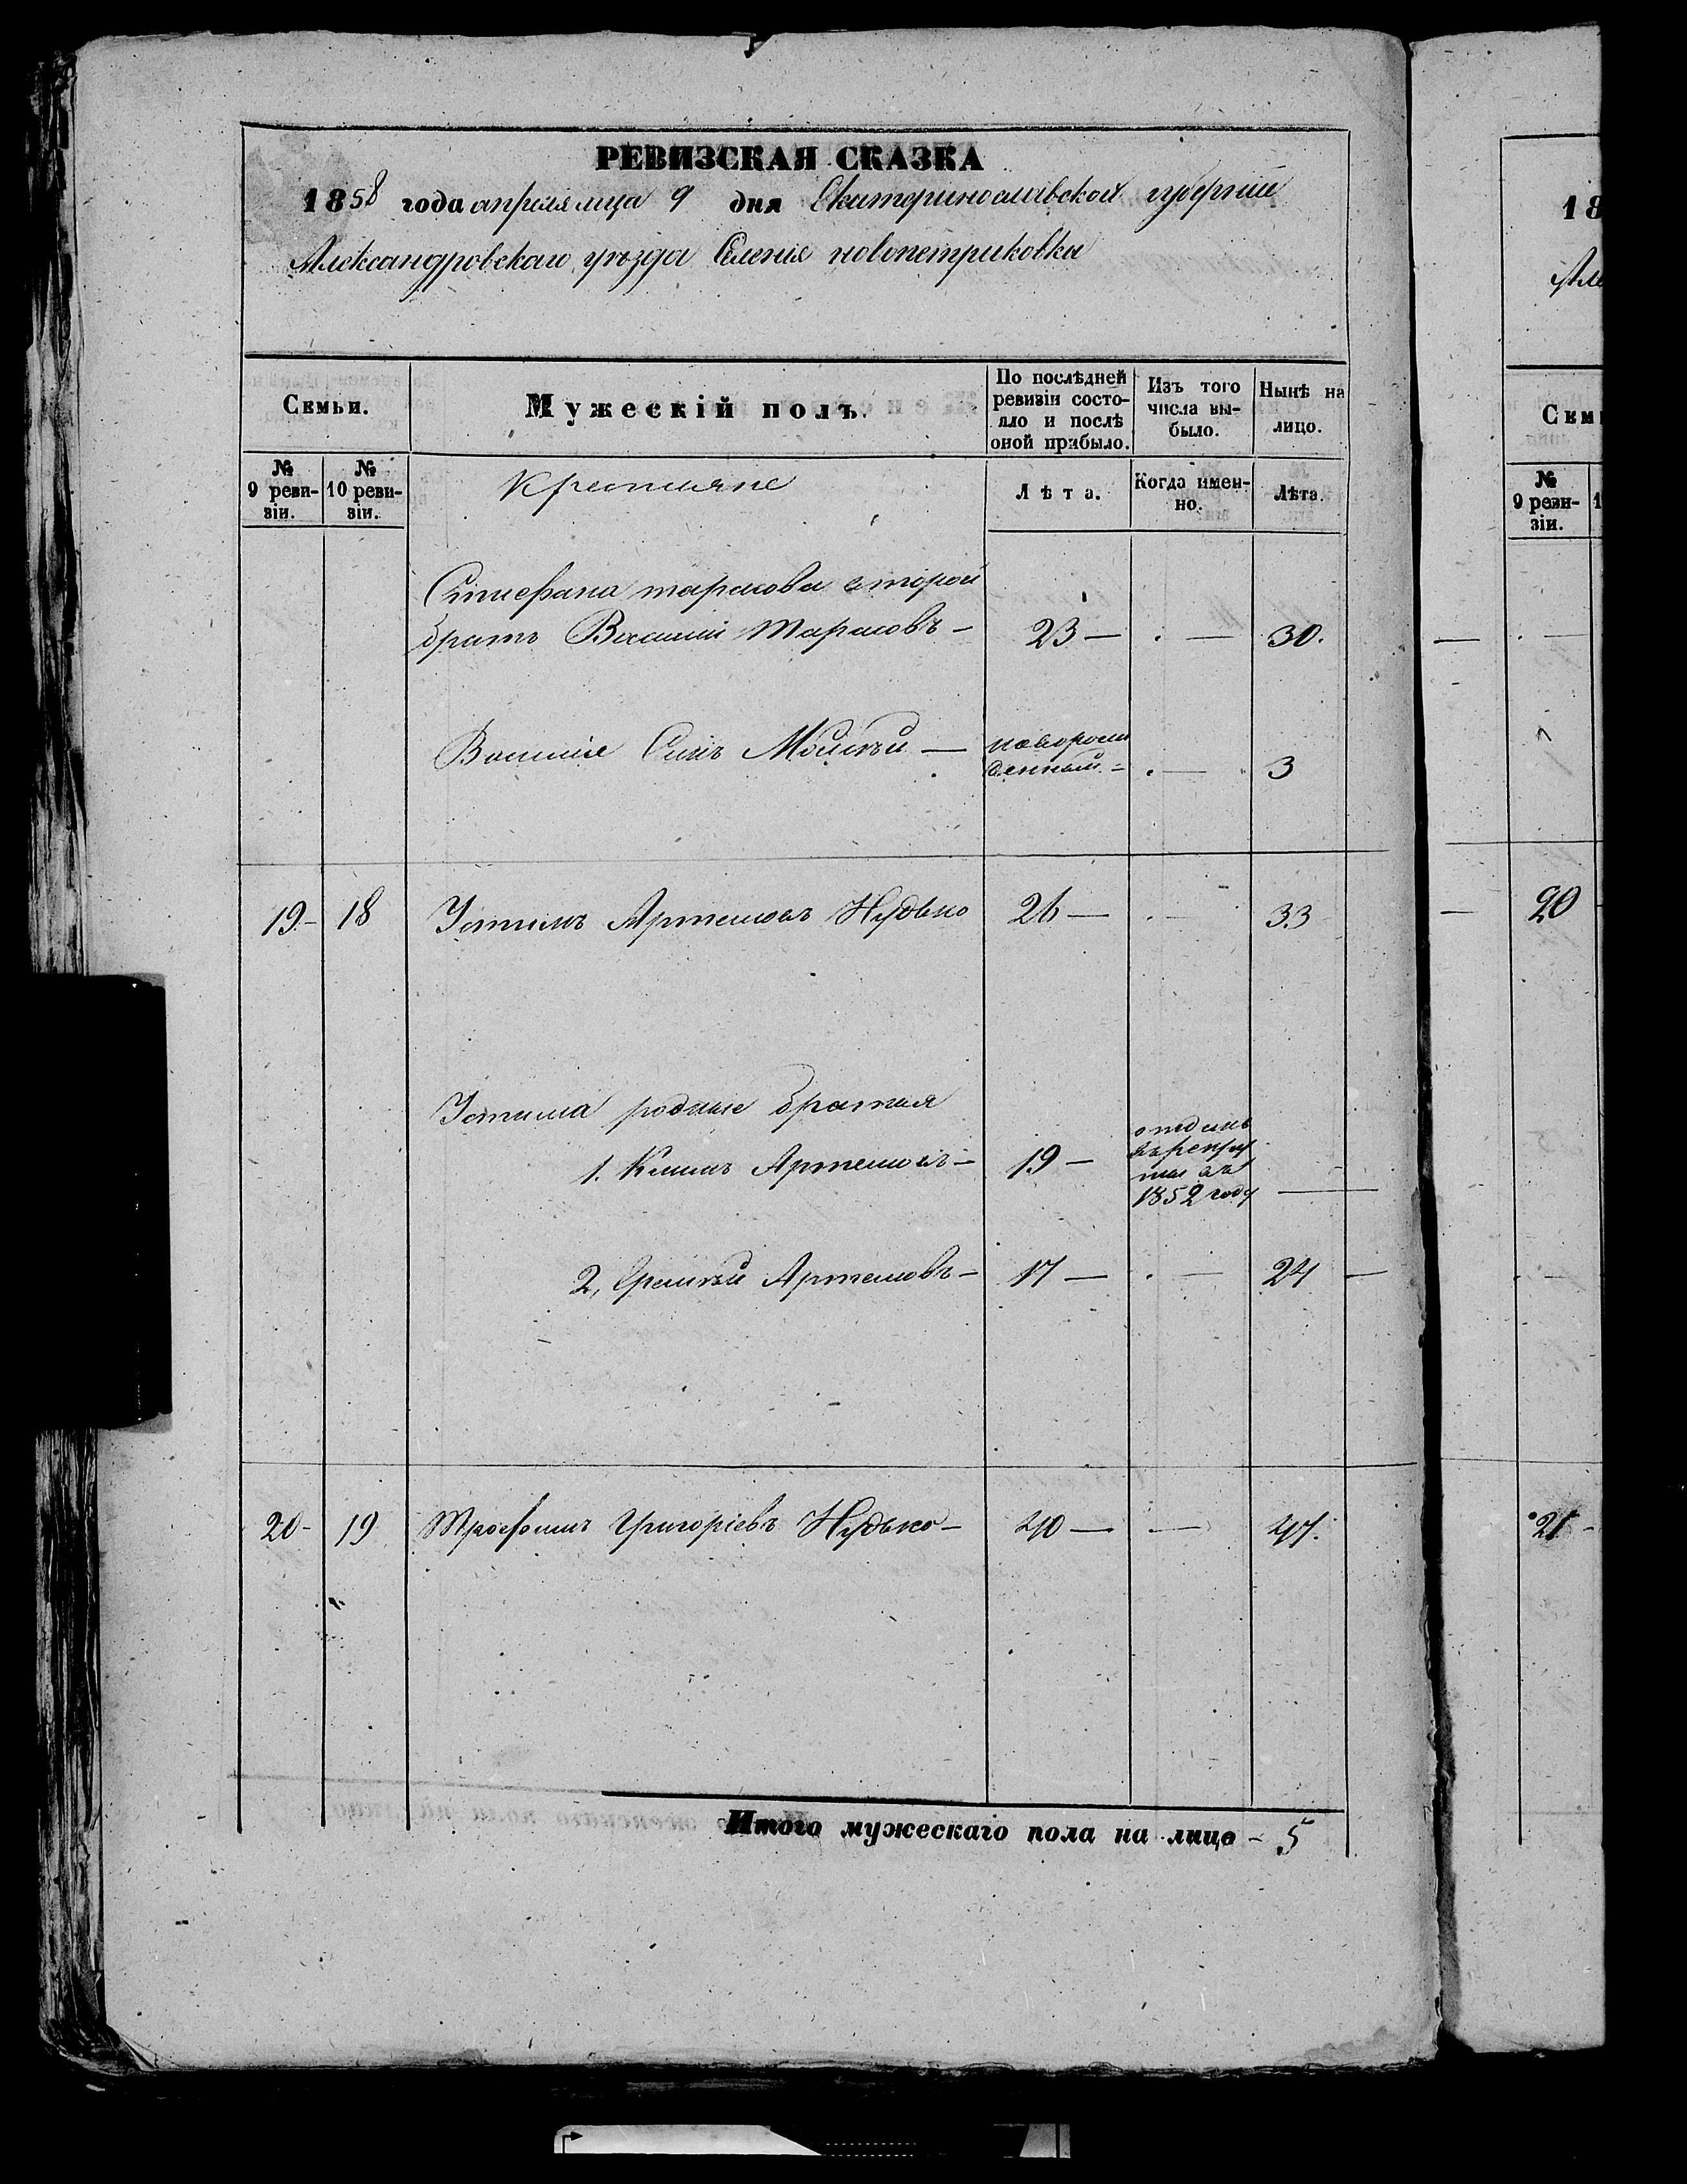 РЕВИЗСКАЯ СКАЗКА
1858 года апреля мца 9 дня Екатеринославской губернiи
Александровскаго уѣзда Селенiя новопетриковки
Семьи.
Мужескiй полъ.
По послѣдней ревизiи состояло и послѣ оной прибыло.
Изъ того числа выбыло.
Нынѣ на лицо.
№ 9 ревизiи.
№ 10 ревизiи.
Крестьяне
Лѣта.
Когда именно.
Лѣта.
Стиефана тарасова второй
братъ Василiй Тарасовъ — 23 — . — 30.
Василiя Сынъ Моисѣй — новорож
денный = . — 3
19 - 18 Устимъ Артемовъ Нудько 26 — . — 33
Устима родные братья
1. Климъ Артемовъ — 19 — отданъ
въ рекру
ты въ
1852 году —
2, Еремѣй Артемовъ — 17 — . — 24 —
20 - 19 Трофимъ Григорiевъ Нудько — 40 — — 47.
Итого мужескаго пола на лицо - 5
18
Але
Сем
№ 9 ревизiи.
1
20
21 -